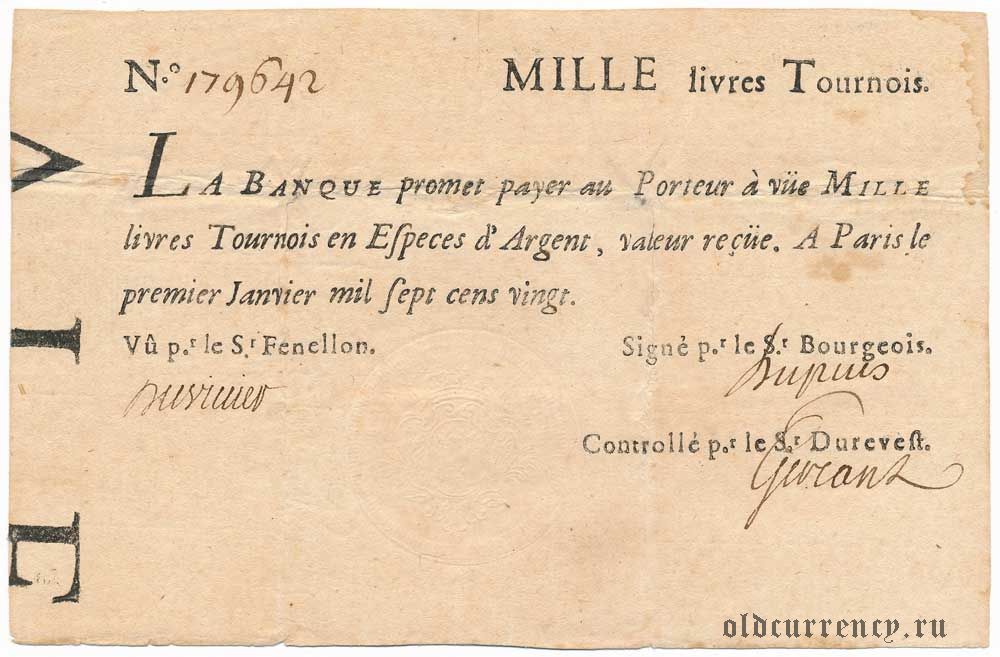 N.º 179642 MILLE livres Tournois.
LA BANQUE promet payer au Porteur à vüe MILLE
livres Tournois en Eſpeces d'Argent, valeur reçüe. A Paris le
premier Janvier mil ſept cens vingt.
Vû p.r le S.r Fenellon. Signé p.r le S.r Bourgeois.
Dupuis
Controllé p.r le S.r Dureveſt.
Gerant
oldcurrency.ru